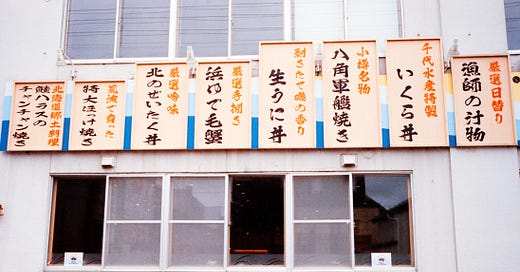 厳選日替り
漁師の汁物
千代水産特製
いくら丼
小樽名物
八角軍艦焼き
剥きたて磯の香り
生うに丼
厳選手捌き
浜ゆで毛蟹
厳選吟味
北のぜいたく丼
荒波で育った
特大ほっけ焼き
北海道郷土料理
鮭ハラスの
チャンチャン焼き